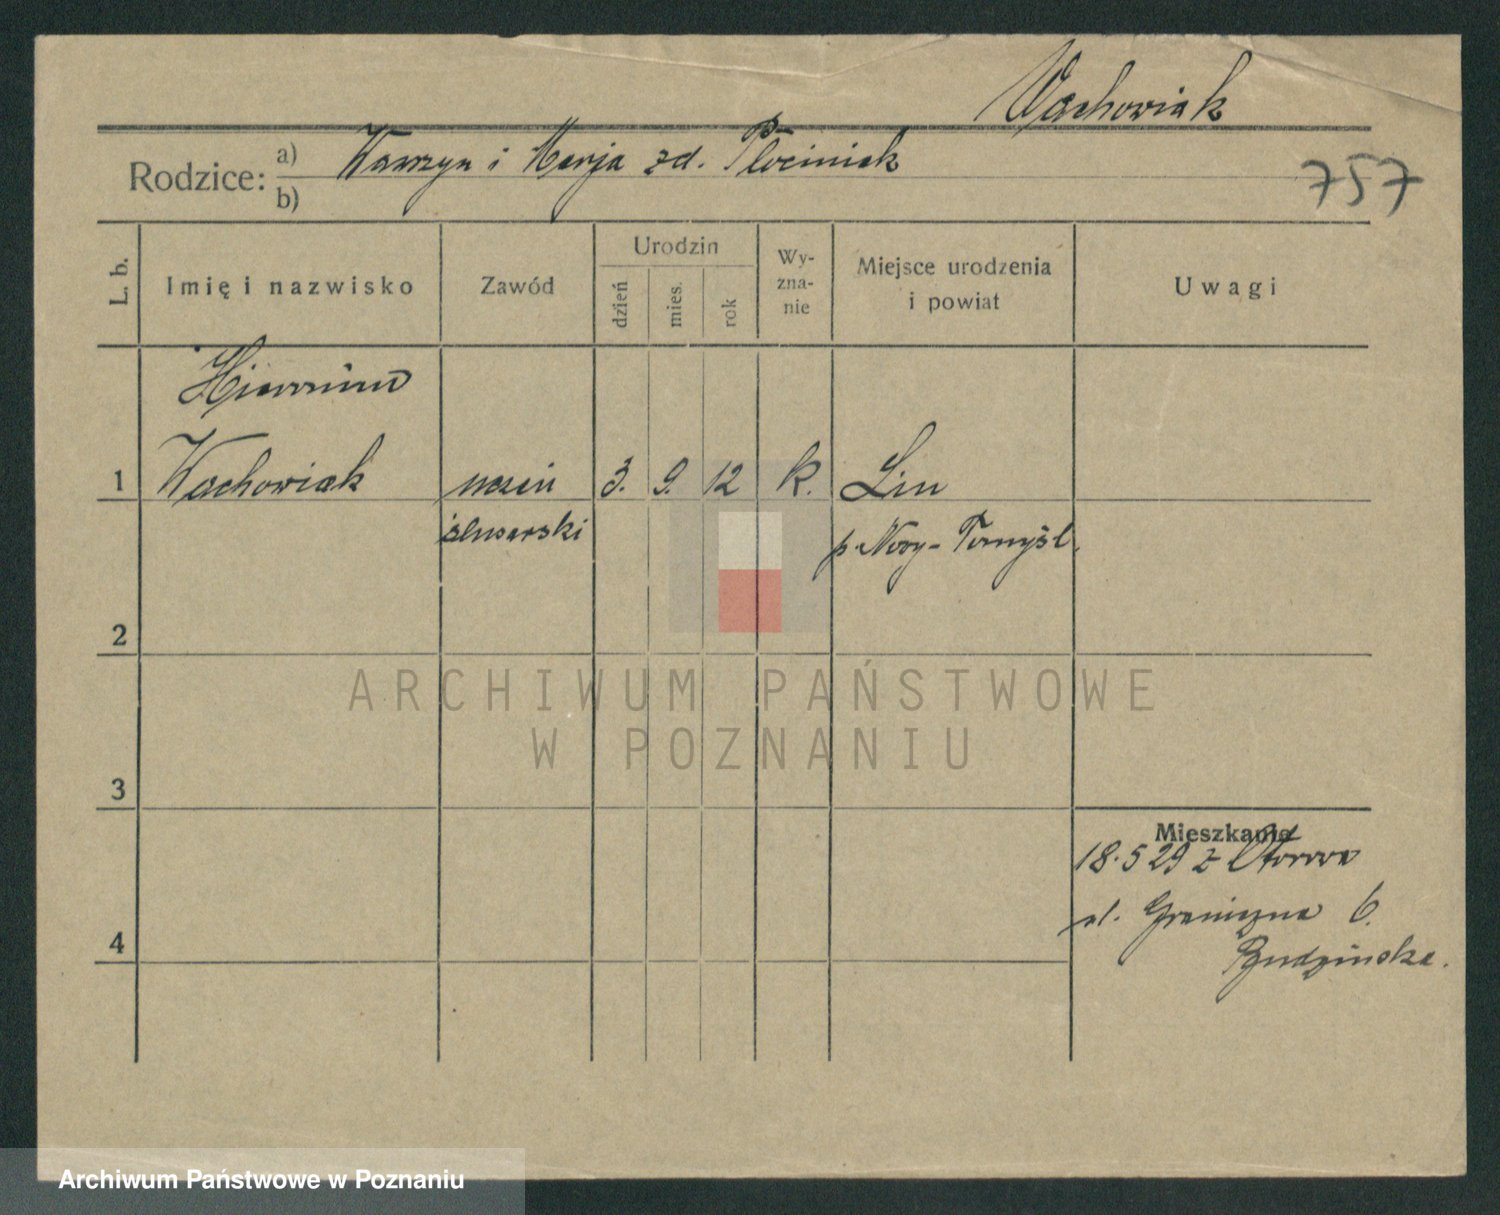 Wachowiak
Rodzice: a) Wawrzyn i Marja zd. Płociniak
b)
757
L. b.
Imię i nazwisko
Zawód
Urodzin
dzień
mies.
rok
Wy-
zna-
nie
Miejsce urodzenia
i powiat
Uwagi
1
Hieronim
Wachowiak
uczeń
ślusarski
3. 9. 12
k.
Lin
p. Nowy-Tomyśl.
2
3
4
Mieszkanie
18.5 29 z Otorowa
ul. Graniczna 6.
Budzińska.
ARCHIWUM PAŃSTWOWE
W POZNANIU
Archiwum Państwowe w Poznaniu